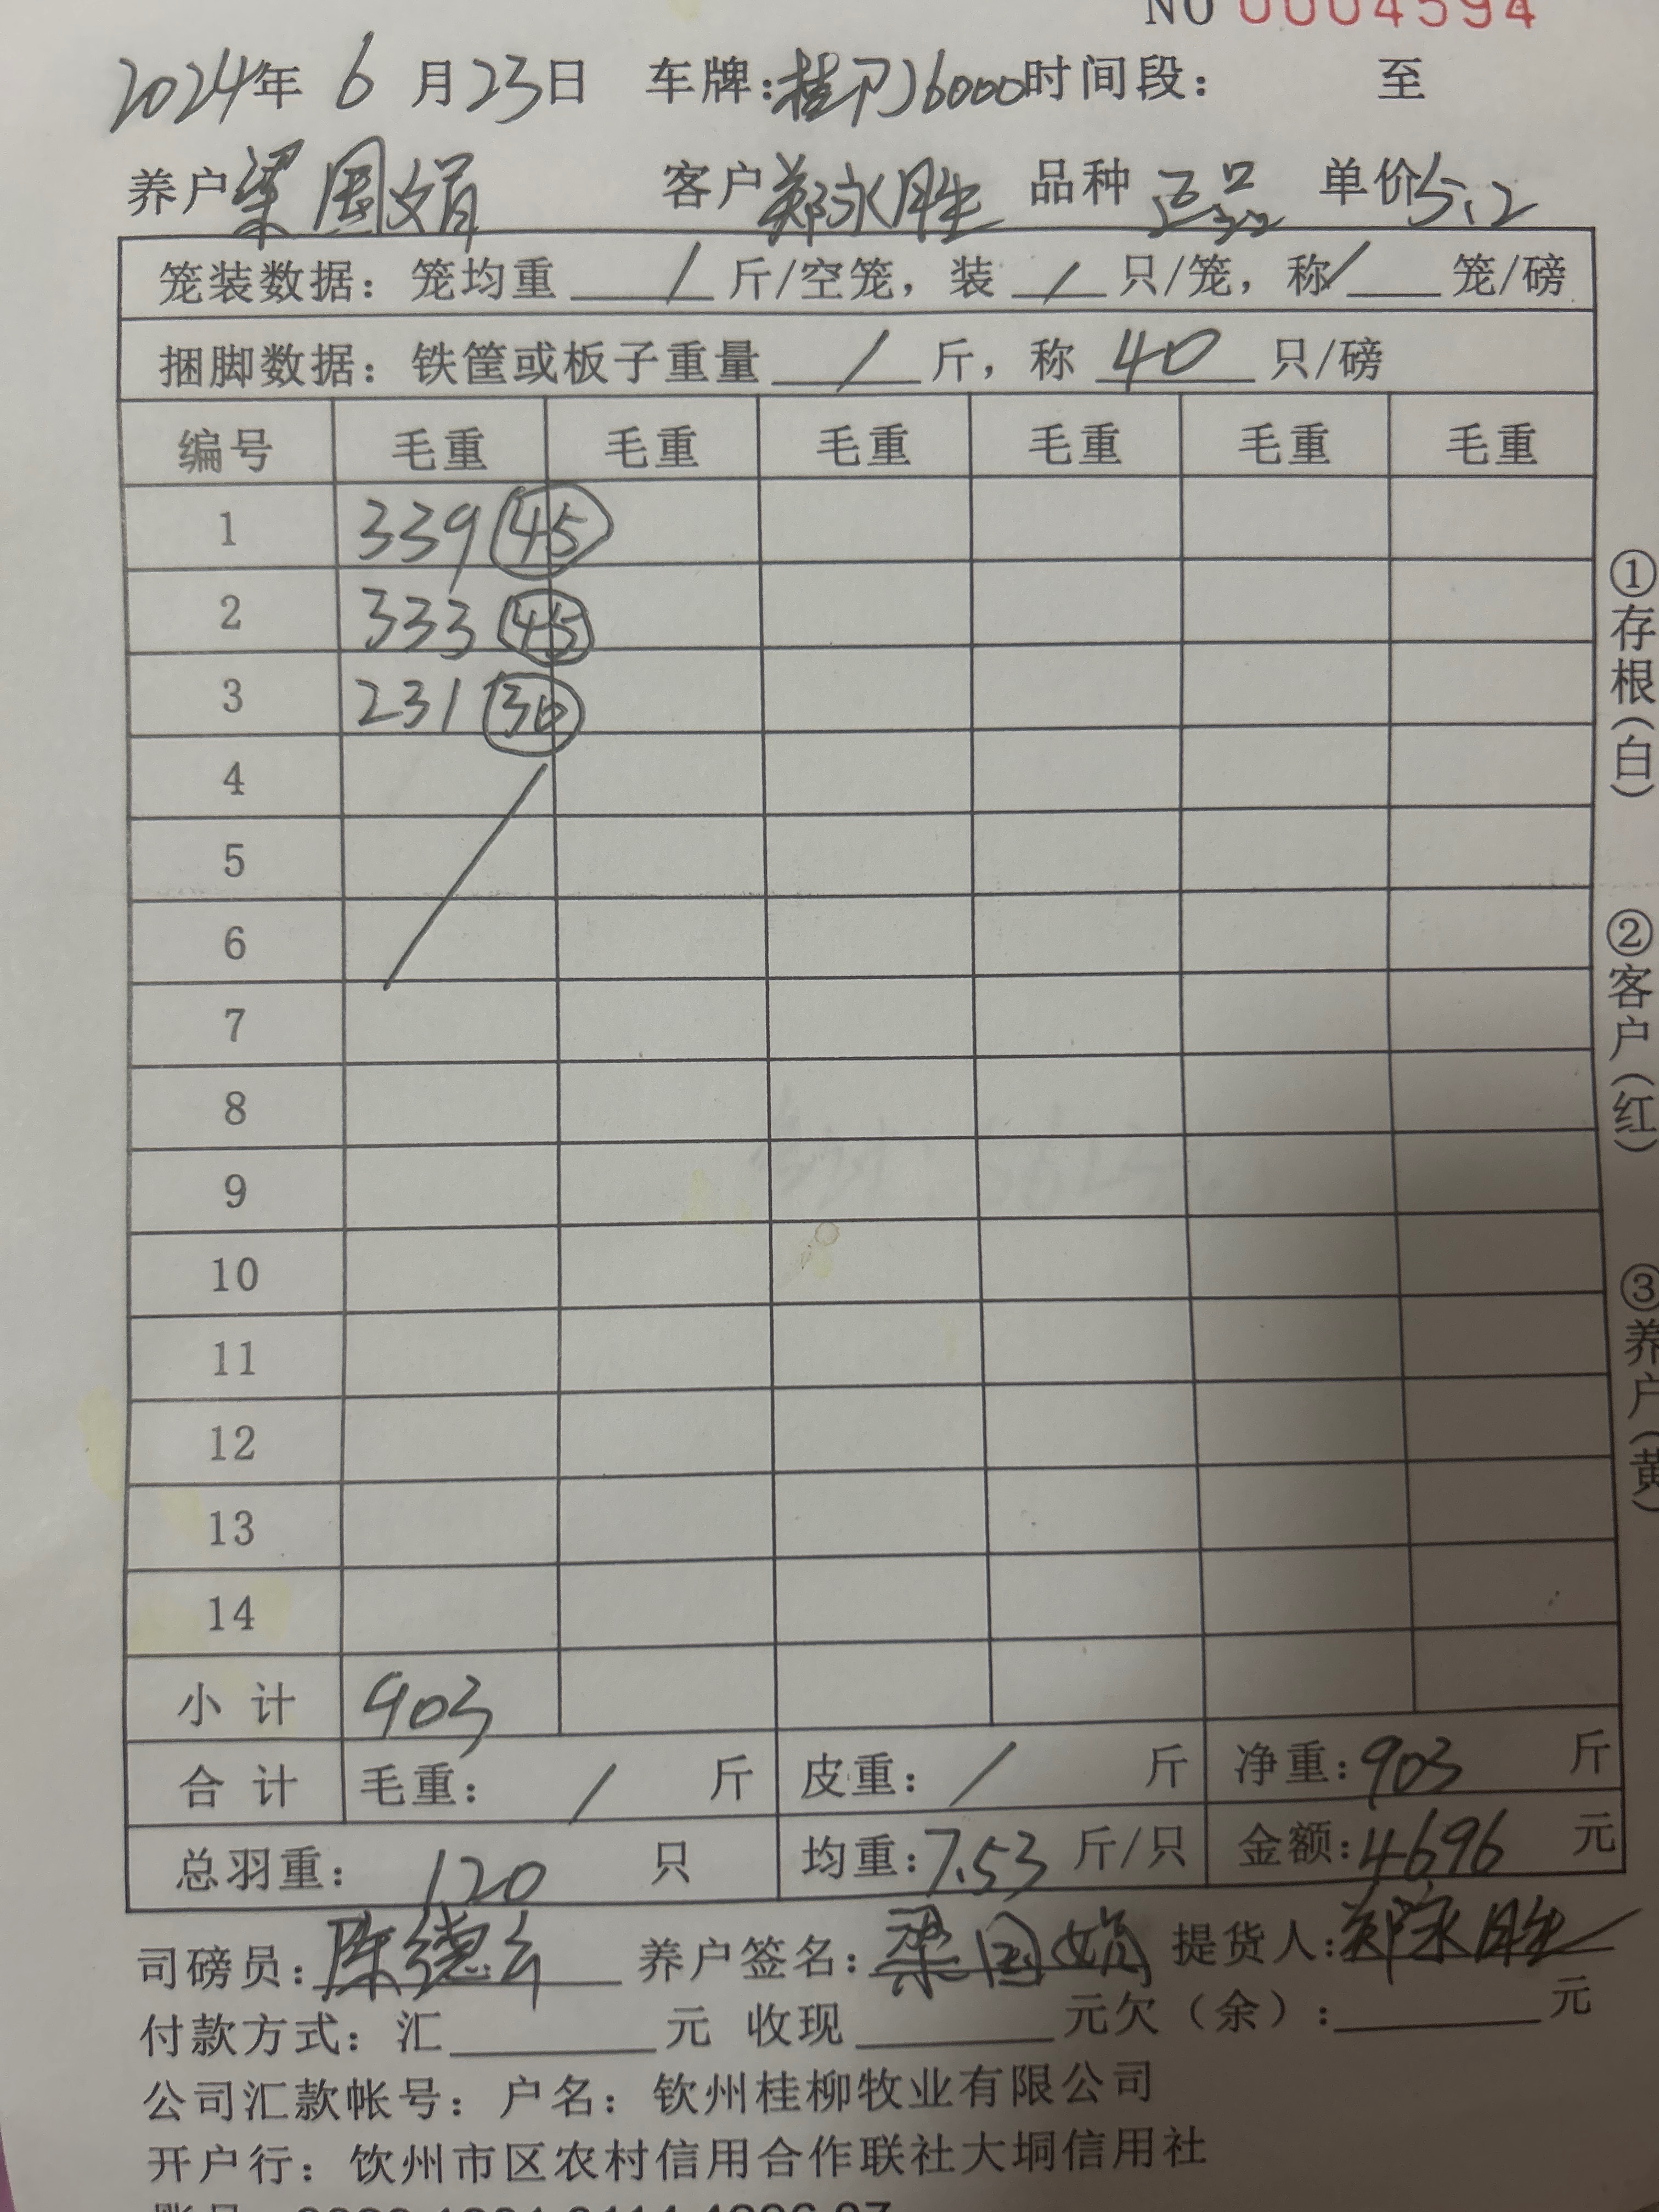 NO 0004594
2024年 6 月23日 车牌:桂 J6000时间段: 至
养户梁国娟 客户郑永胜 品种 正品 单价5.2
笼装数据: 笼均重 / 斤/空笼, 装 / 只/笼, 称 / 笼/磅
捆脚数据: 铁筐或板子重量 / 斤, 称 40 只/磅
编号 毛重 毛重 毛重 毛重 毛重 毛重
1 339 45
2 333 45
3 231 30
4
5
6
7
8
9
10
11
12
13
14
小 计 903
合 计 毛重: / 斤 皮重: / 斤 净重:903 斤
总羽重: 120 只 均重:7.53 斤/只 金额:4696 元
司磅员:陈德 养户签名:梁国娟 提货人:郑永胜
付款方式: 汇 元 收现 元欠(余): 元
公司汇款帐号: 户名: 钦州桂柳牧业有限公司
开户行: 钦州市区农村信用合作联社大垌信用社
①存根(白)
②客户(红)
③养户(黄)